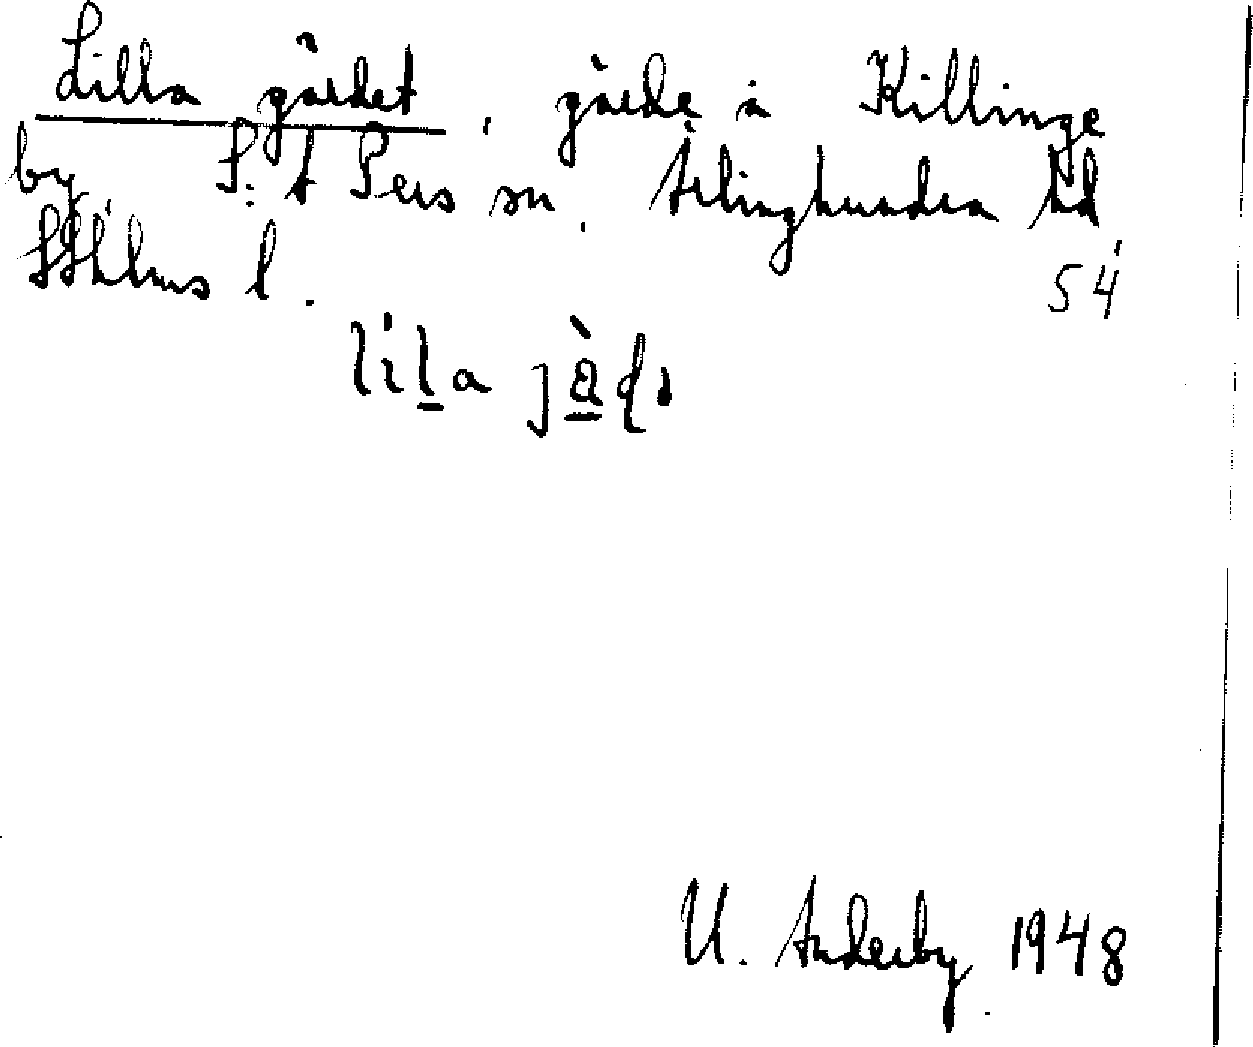 Lilla gärdet, gärde å Killinge
by S:t Pers sn. Ärlinghundra hd
Sthlms l. 54
U. Anderby 1948